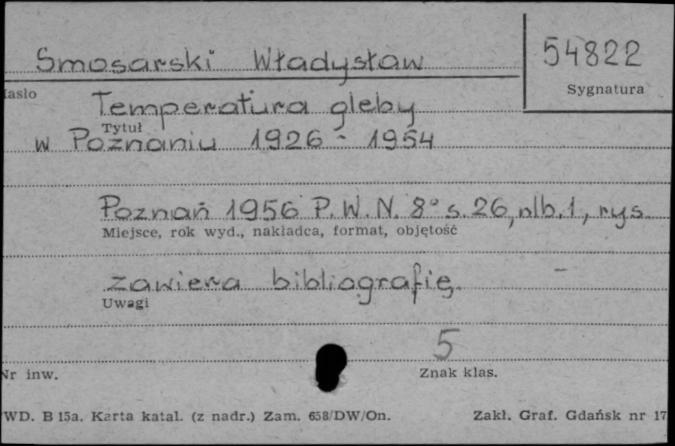 Smosarski Władysław
54822
Sygnatura
Temperatura gleby
Tytuł
w Poznaniu 1926 - 1954
Poznań 1956 P. W. N. 8° s. 26, nlb. 1, rys.
Miejsce, rok wyd., nakładca, format, objętość
zawiera bibliografię.
Uwagi
5
Nr inw.
Znak klas.
WD. B 15a. Karta katal. (z nadr.) Zam. 658/DW/On.
Zakł. Graf. Gdańsk nr 17